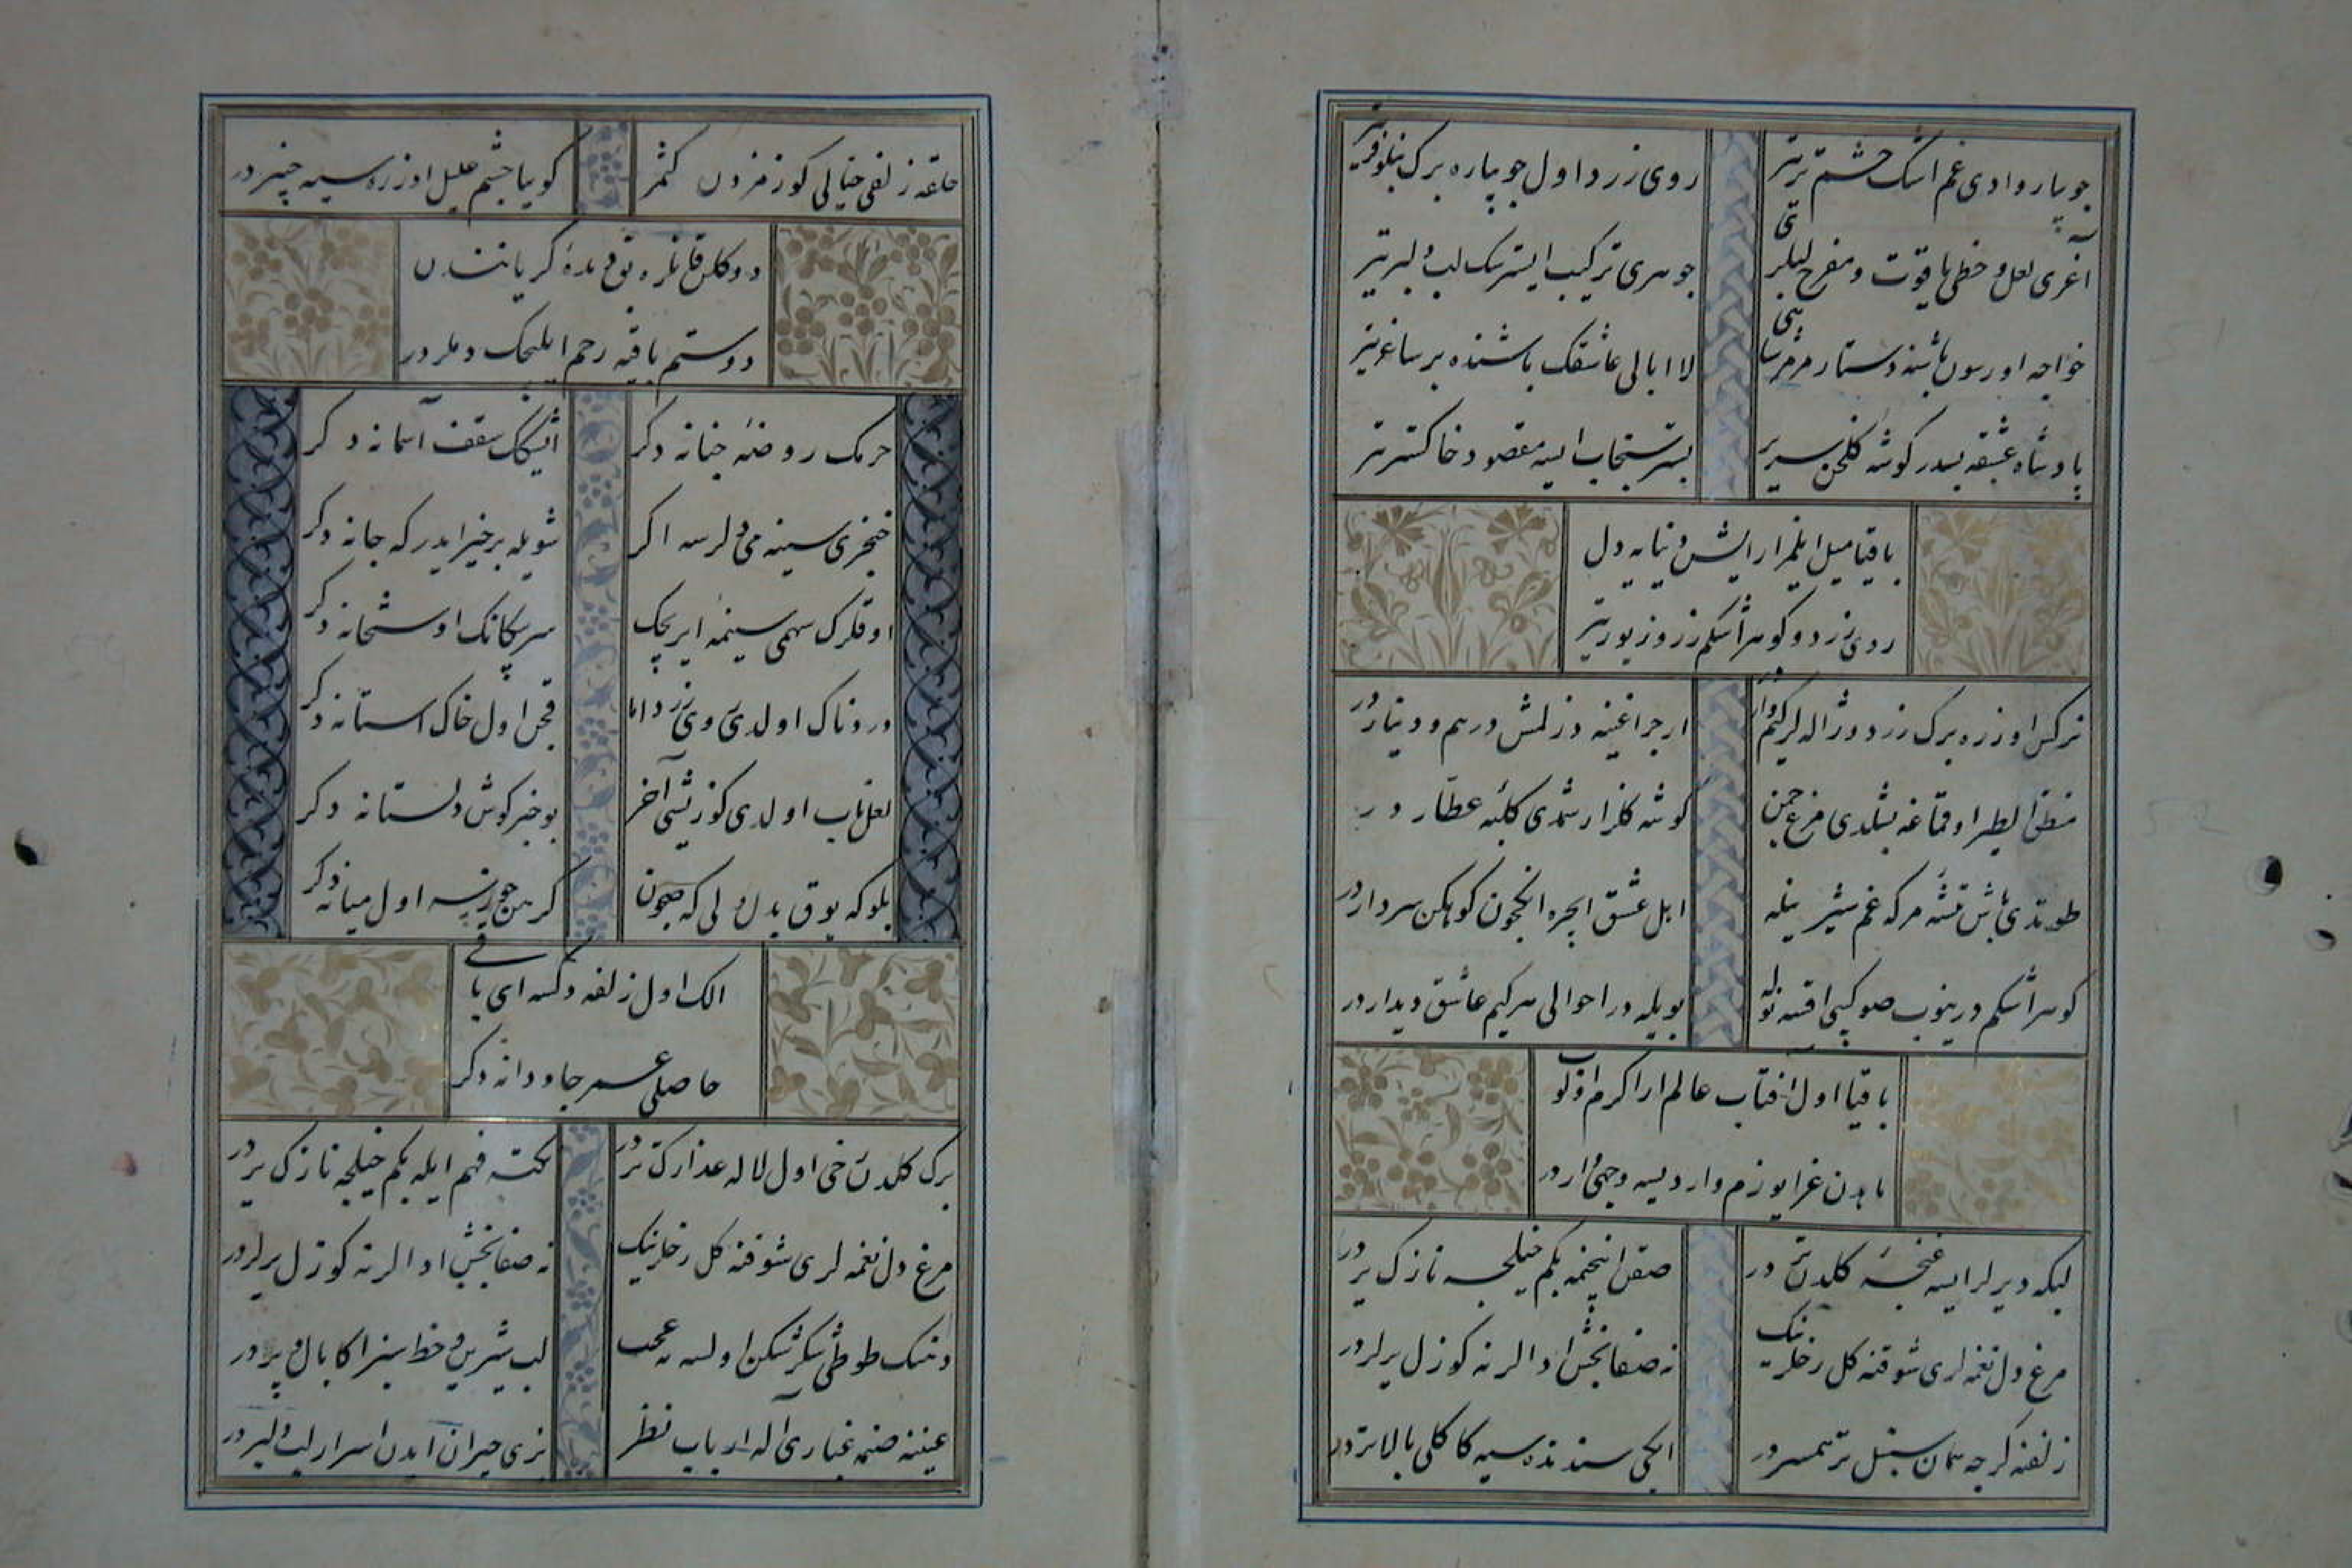 جويبار وادی غم اشك چشم تریتر
روی زرد اول جويباره برك نيلوفریتر
آغری لعل و خطی ياقوت و مفرح لبلری
جوهری ترکيب ايسترسك لب دلبریتر
خواجه اورسون باشنه دستار مرمرشاهی
لاابالی عاشقك باشنده بر ساغریتر
پادشاه عشقه بسدر کوشه کلخن سریر
بستر سنجاب ايسه مقصود خاکستریتر
باقيا ميل ايلمز ارايش دنيايه دل
روی زرد و کوهر اشکم زر و زیوریتر
نرکس اوزره برك زرد و ژاله لر کيم وار در
ارجراغينه دزلمش درهم و دينار در
منطق الطير اوقماغه بشلدی مرغ چمن
کوشه کلزار شمدی کلبه عطار در
طوتدی باش تيشه مرکه غم شيرينله
اهل عشق ايچره انكچون کوهکن سردار در
کوهر اشکم درينوب صو کبی اقسه نوله
بويله در احوالی هر کيم عاشق ديدار در
باقيا اول آفتاب عالم ارا کرم اولوب
بادن غرا يوزم وار ديسه وجهی وار در
ليکه ديرلر ايسه غنچه کلدن تر در
صقن اينجنمه بکم خيليجه نازك یر در
مرغ دل نغمه لری شوقنه کل رخلرينك
نه صفابخش ادالر نه کوزل یرلر در
زلفنه کرچه سمان سنبل تر همسر در
ايکی سنده سيه کاکلی بالاتر در
حلقه زلفی خيالی کوزمزدن کتمز
کوييا چشم عليل اوزره سيه چنبر در
دوکلن قانلره باق ديده کریانندن
دوستم باقيه رحم ايليجك دملر در
حرمك روضه جنانه دکر
اشيکك سقف آسمانه دکر
خنجری سينه می دلرسه اکر
شويله بر خير ايدر که جانه دکر
اوقلرك سهمی سينمه ايریجك
سر پيکانك اوستخانه دکر
دردناك اولدی روی زرد اما
قچن اول خاك استانه دکر
لعل ناب اولدی کوز یشی آخر
بو خبر کوش دلستانه دکر
بلو که يوق بدل لی که همچون
کرهن جوزنسه اول ميانه دکر
الك اول زلفه دکسه ای باقی
حاصلی عمر جاودانه دکر
برك کلدن دخی اول لاله عذارك تر در
نکته فهم ايله بکم خيليجه نازك یر در
مرغ دل نغمه لری شوقنه کل رخلرينك
نه صفابخش ادالر نه کوزل یرلر در
دهنك طوطی شکرشکن اولسه نه عجب
لب شيرين و خط سبز اکا بال و پر در
عيننه صنمه غباری آله ارباب نظر
بزی حيران ايدن اسرار لب دلبر در